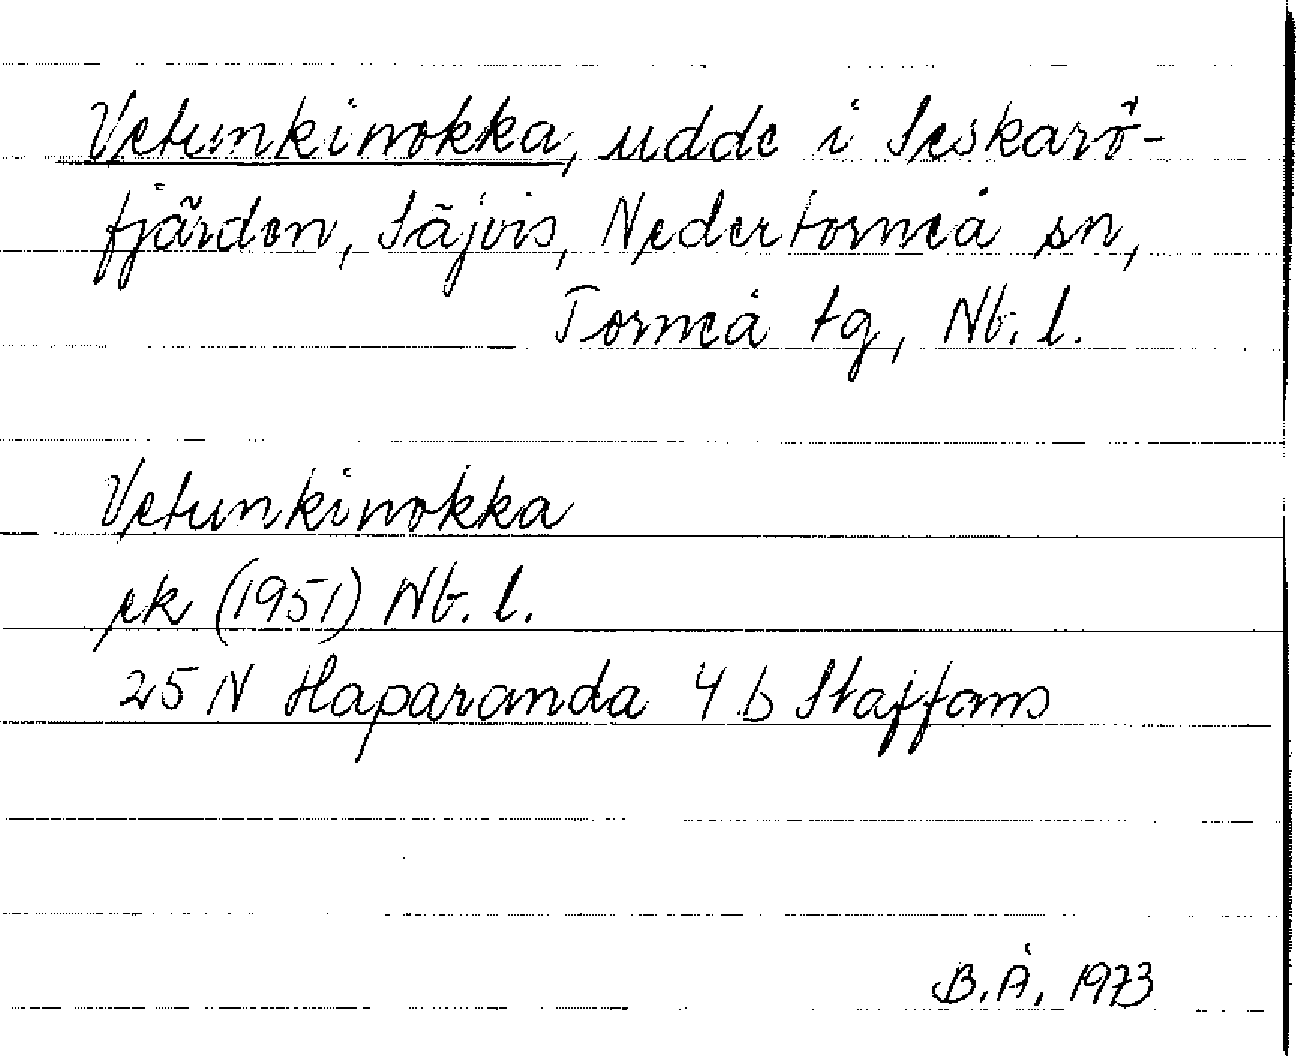 Vetunkinokka, udde i Seskarö-
fjärden, Säjvis, Nedertorneå sn,
Torneå tg, Nb. l.
Vetunkinokka
ek (1951) Nb. l.
25 N Haparanda 4 b Staffans
B.Å. 1973